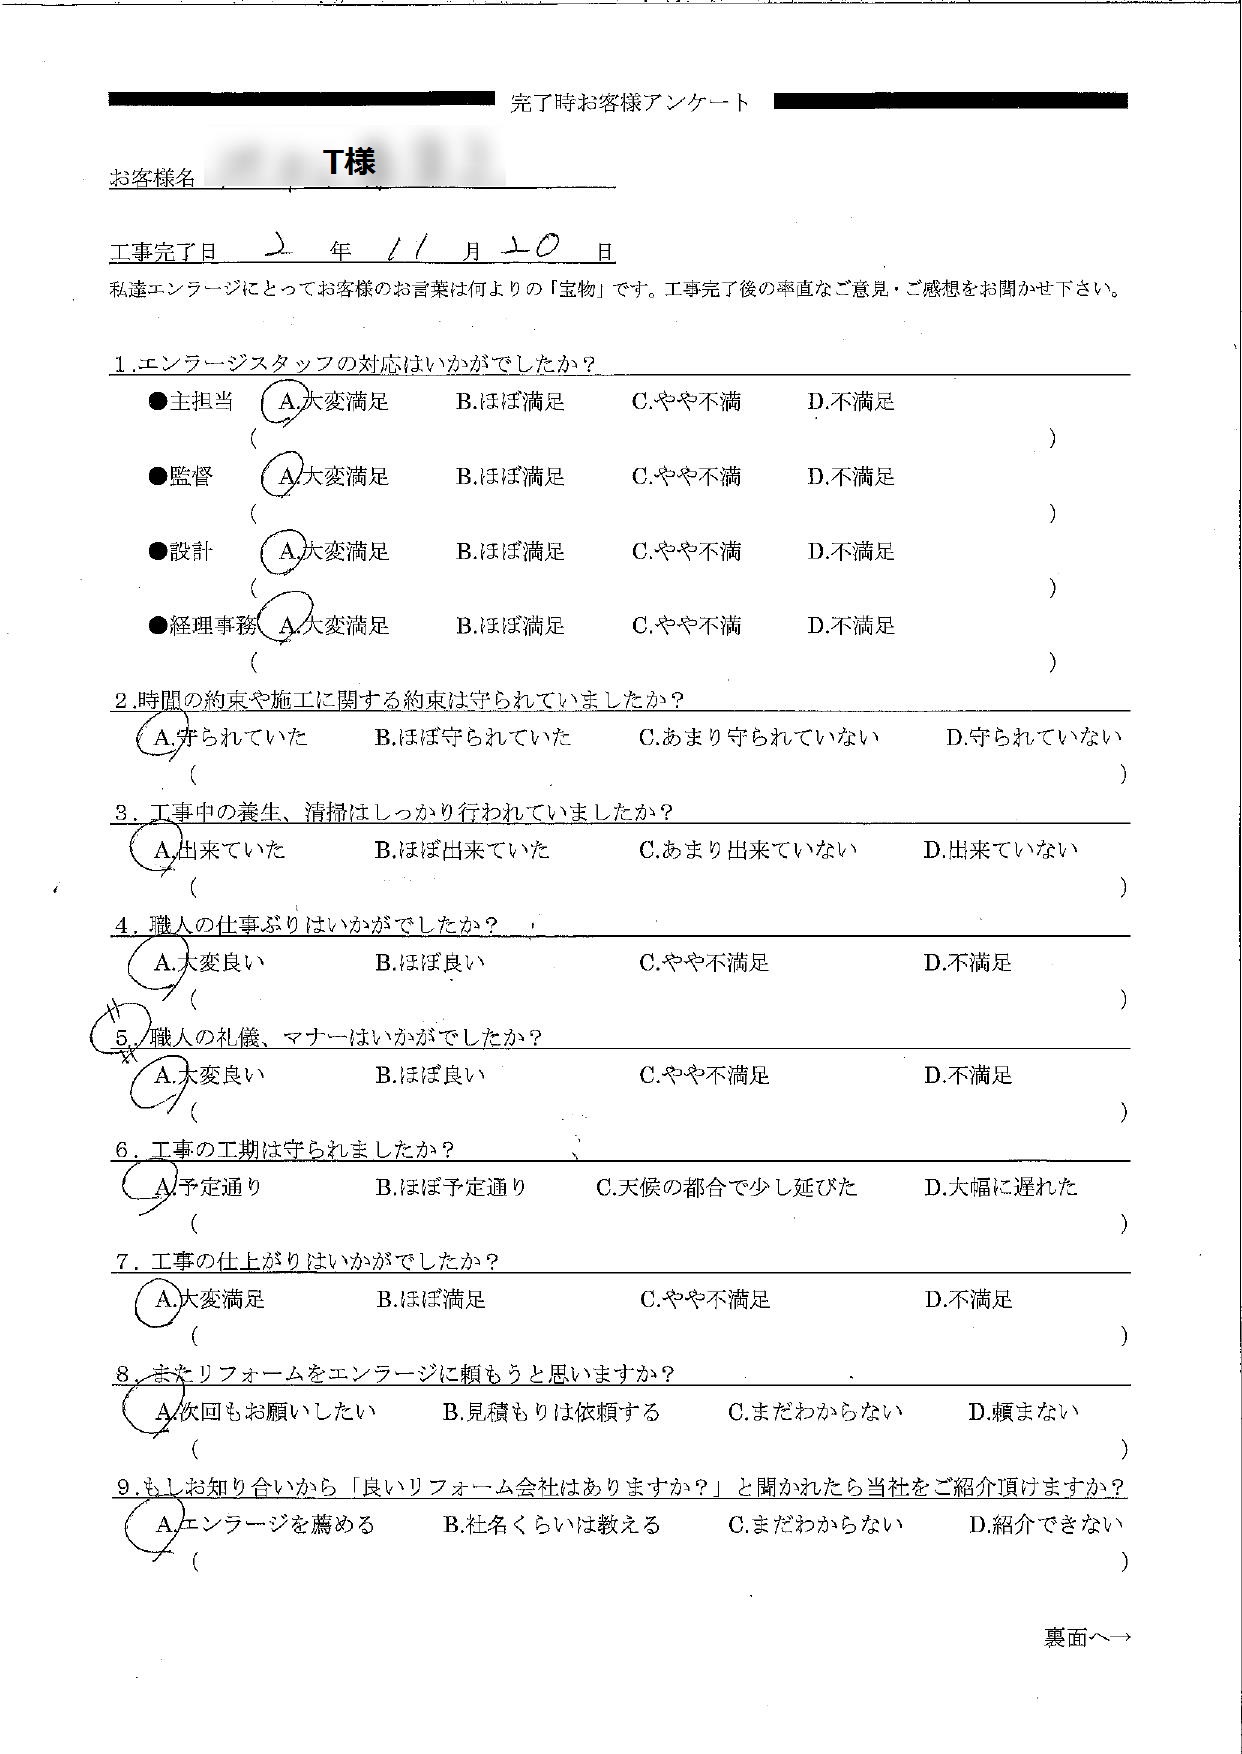 完了時お客様アンケート
お客様名 T様
工事完了日 2 年 11 月 20 日
私達エンラージにとってお客様のお言葉は何よりの「宝物」です。工事完了後の率直なご意見・ご感想をお聞かせ下さい。
1.エンラージスタッフの対応はいかがでしたか?
●主担当 A.大変満足 B.ほぼ満足 C.やや不満 D.不満足
( )
●監督 A.大変満足 B.ほぼ満足 C.やや不満 D.不満足
( )
●設計 A.大変満足 B.ほぼ満足 C.やや不満 D.不満足
( )
●経理事務 A.大変満足 B.ほぼ満足 C.やや不満 D.不満足
( )
2.時間の約束や施工に関する約束は守られていましたか?
A.守られていた B.ほぼ守られていた C.あまり守られていない D.守られていない
( )
3. 工事中の養生、清掃はしっかり行われていましたか?
A.出来ていた B.ほぼ出来ていた C.あまり出来ていない D.出来ていない
( )
4. 職人の仕事ぶりはいかがでしたか?
A.大変良い B.ほぼ良い C.やや不満足 D.不満足
( )
5. 職人の礼儀、マナーはいかがでしたか?
A.大変良い B.ほぼ良い C.やや不満足 D.不満足
( )
6. 工事の工期は守られましたか?
A.予定通り B.ほぼ予定通り C.天候の都合で少し延びた D.大幅に遅れた
( )
7. 工事の仕上がりはいかがでしたか?
A.大変満足 B.ほぼ満足 C.やや不満足 D.不満足
( )
8. またリフォームをエンラージに頼もうと思いますか?
A.次回もお願いしたい B.見積もりは依頼する C.まだわからない D.頼まない
( )
9.もしお知り合いから「良いリフォーム会社はありますか?」と聞かれたら当社をご紹介頂けますか?
A.エンラージを薦める B.社名くらいは教える C.まだわからない D.紹介できない
( )
裏面へ→